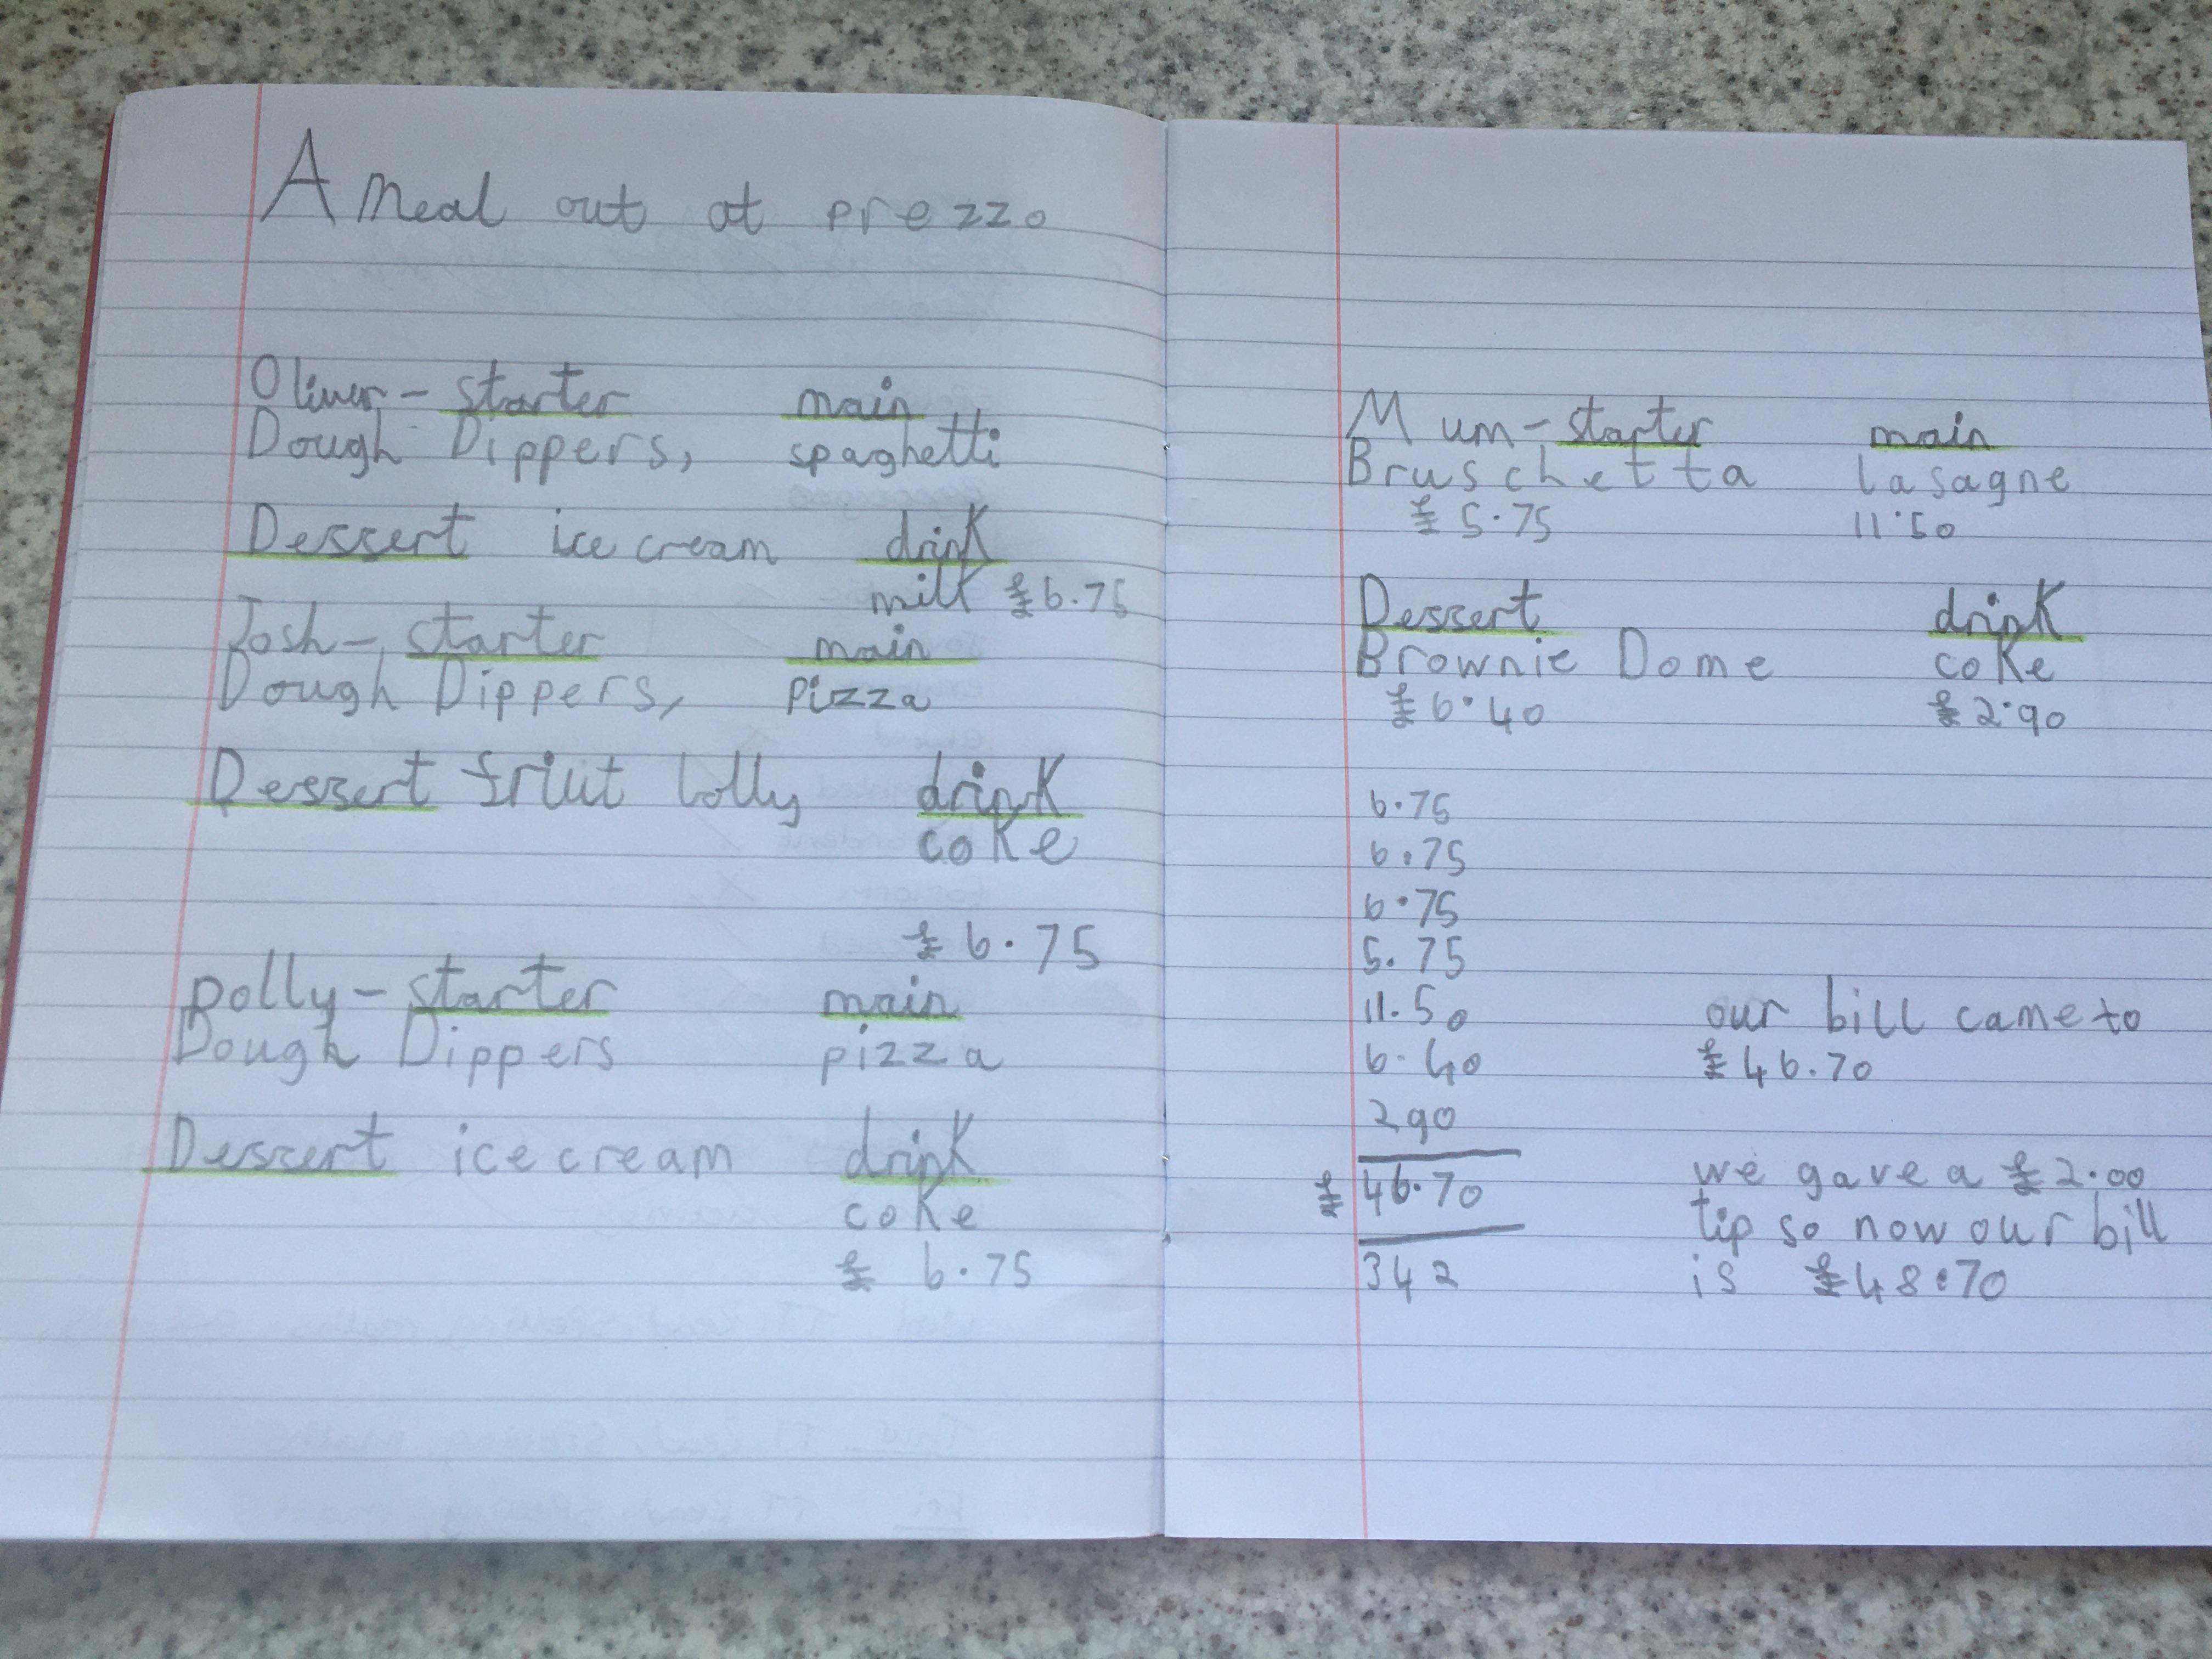 A meal out at prezzo
Oliver - starter main
Dough Dippers, spaghetti
Dessert ice cream drink
milk £6.75
Josh - starter main
Dough Dippers, pizza
Dessert friut lolly drink
coke
£6.75
polly - starter main
Dough Dippers pizza
Dessert ice cream drink
coke
£6.75
Mum - starter main
Bruschetta lasagne
£5.75 11.50
Dessert drink
Brownie Dome coke
£6.40 £2.90
6.75
6.75
6.75
5.75
11.50
6.40
290
£46.70
342
our bill came to
£46.70
we gave a £2.00
tip so now our bill
is £48.70